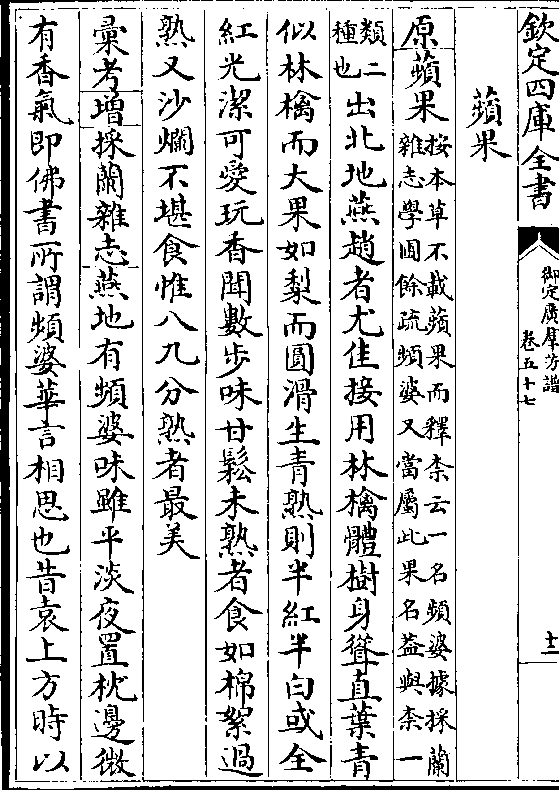 欽定四庫全書
御定廣羣芳譜
卷五十七
十二
蘋果
原蘋果按本草不載蘋果而釋柰云一名頻婆據採蘭
雜志學圃餘疏頻婆又當屬此果名蓋與柰一
類二
種也出北地燕趙者尤佳接用林檎體樹身聳直葉青
似林檎而大果如梨而圓滑生青熟則半紅半白或全
紅光潔可愛玩香聞數步味甘鬆未熟者食如棉絮過
熟又沙爛不堪食惟八九分熟者最美
彚考增採蘭雜志燕地有頻婆味雖平淡夜置枕邊微
有香氣即佛書所謂頻婆華言相思也昔袁上方時以